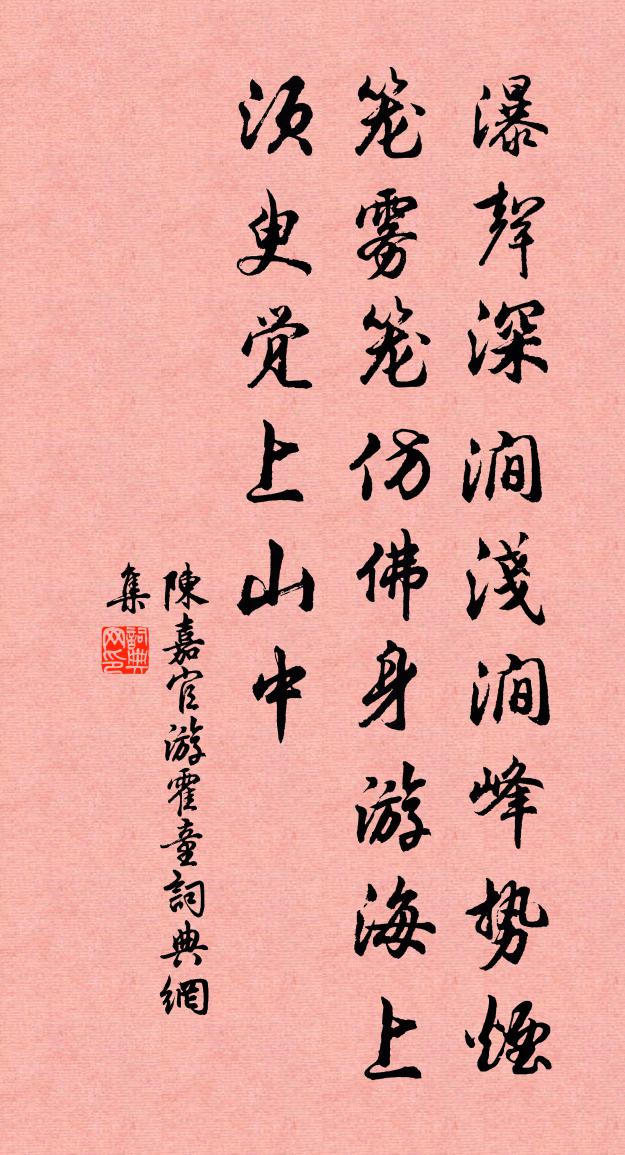 瀑聲深涧淺涧峰势煙
笼雾笼仿佛身游海上
须臾觉上山中
陳嘉官游霍童詞典網
集
詞典网印